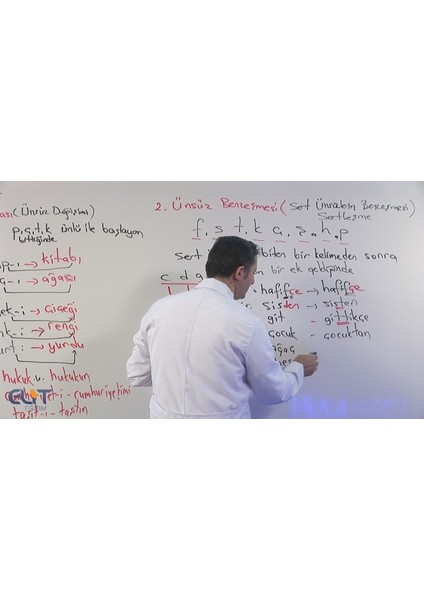 ası (Ünsüz Değişimi)
p,ç,t,k ünlü ile başlayan
bittiğinde
p-ı → kitabı
ç-ı → ağacı
ek-i → çiçeği
nk-i → rengi
urt-ı → yurdu
hukuk-u hukukun
cumhuriyet-i - cumhuriyetimi
2. Ünsüz Benzeşmesi (Sert Ünsüzlerin Benzeşmesi)
Sertleşme
f, s, t, k, ç, ş, h, p
Sert biten bir kelimeden sonra
c d g bir ek geldiğinde
hafifçe → hafifçe
sisten → sisten
git - gittikçe
çocuk - çocuktan
ağaç
EĞİTİM